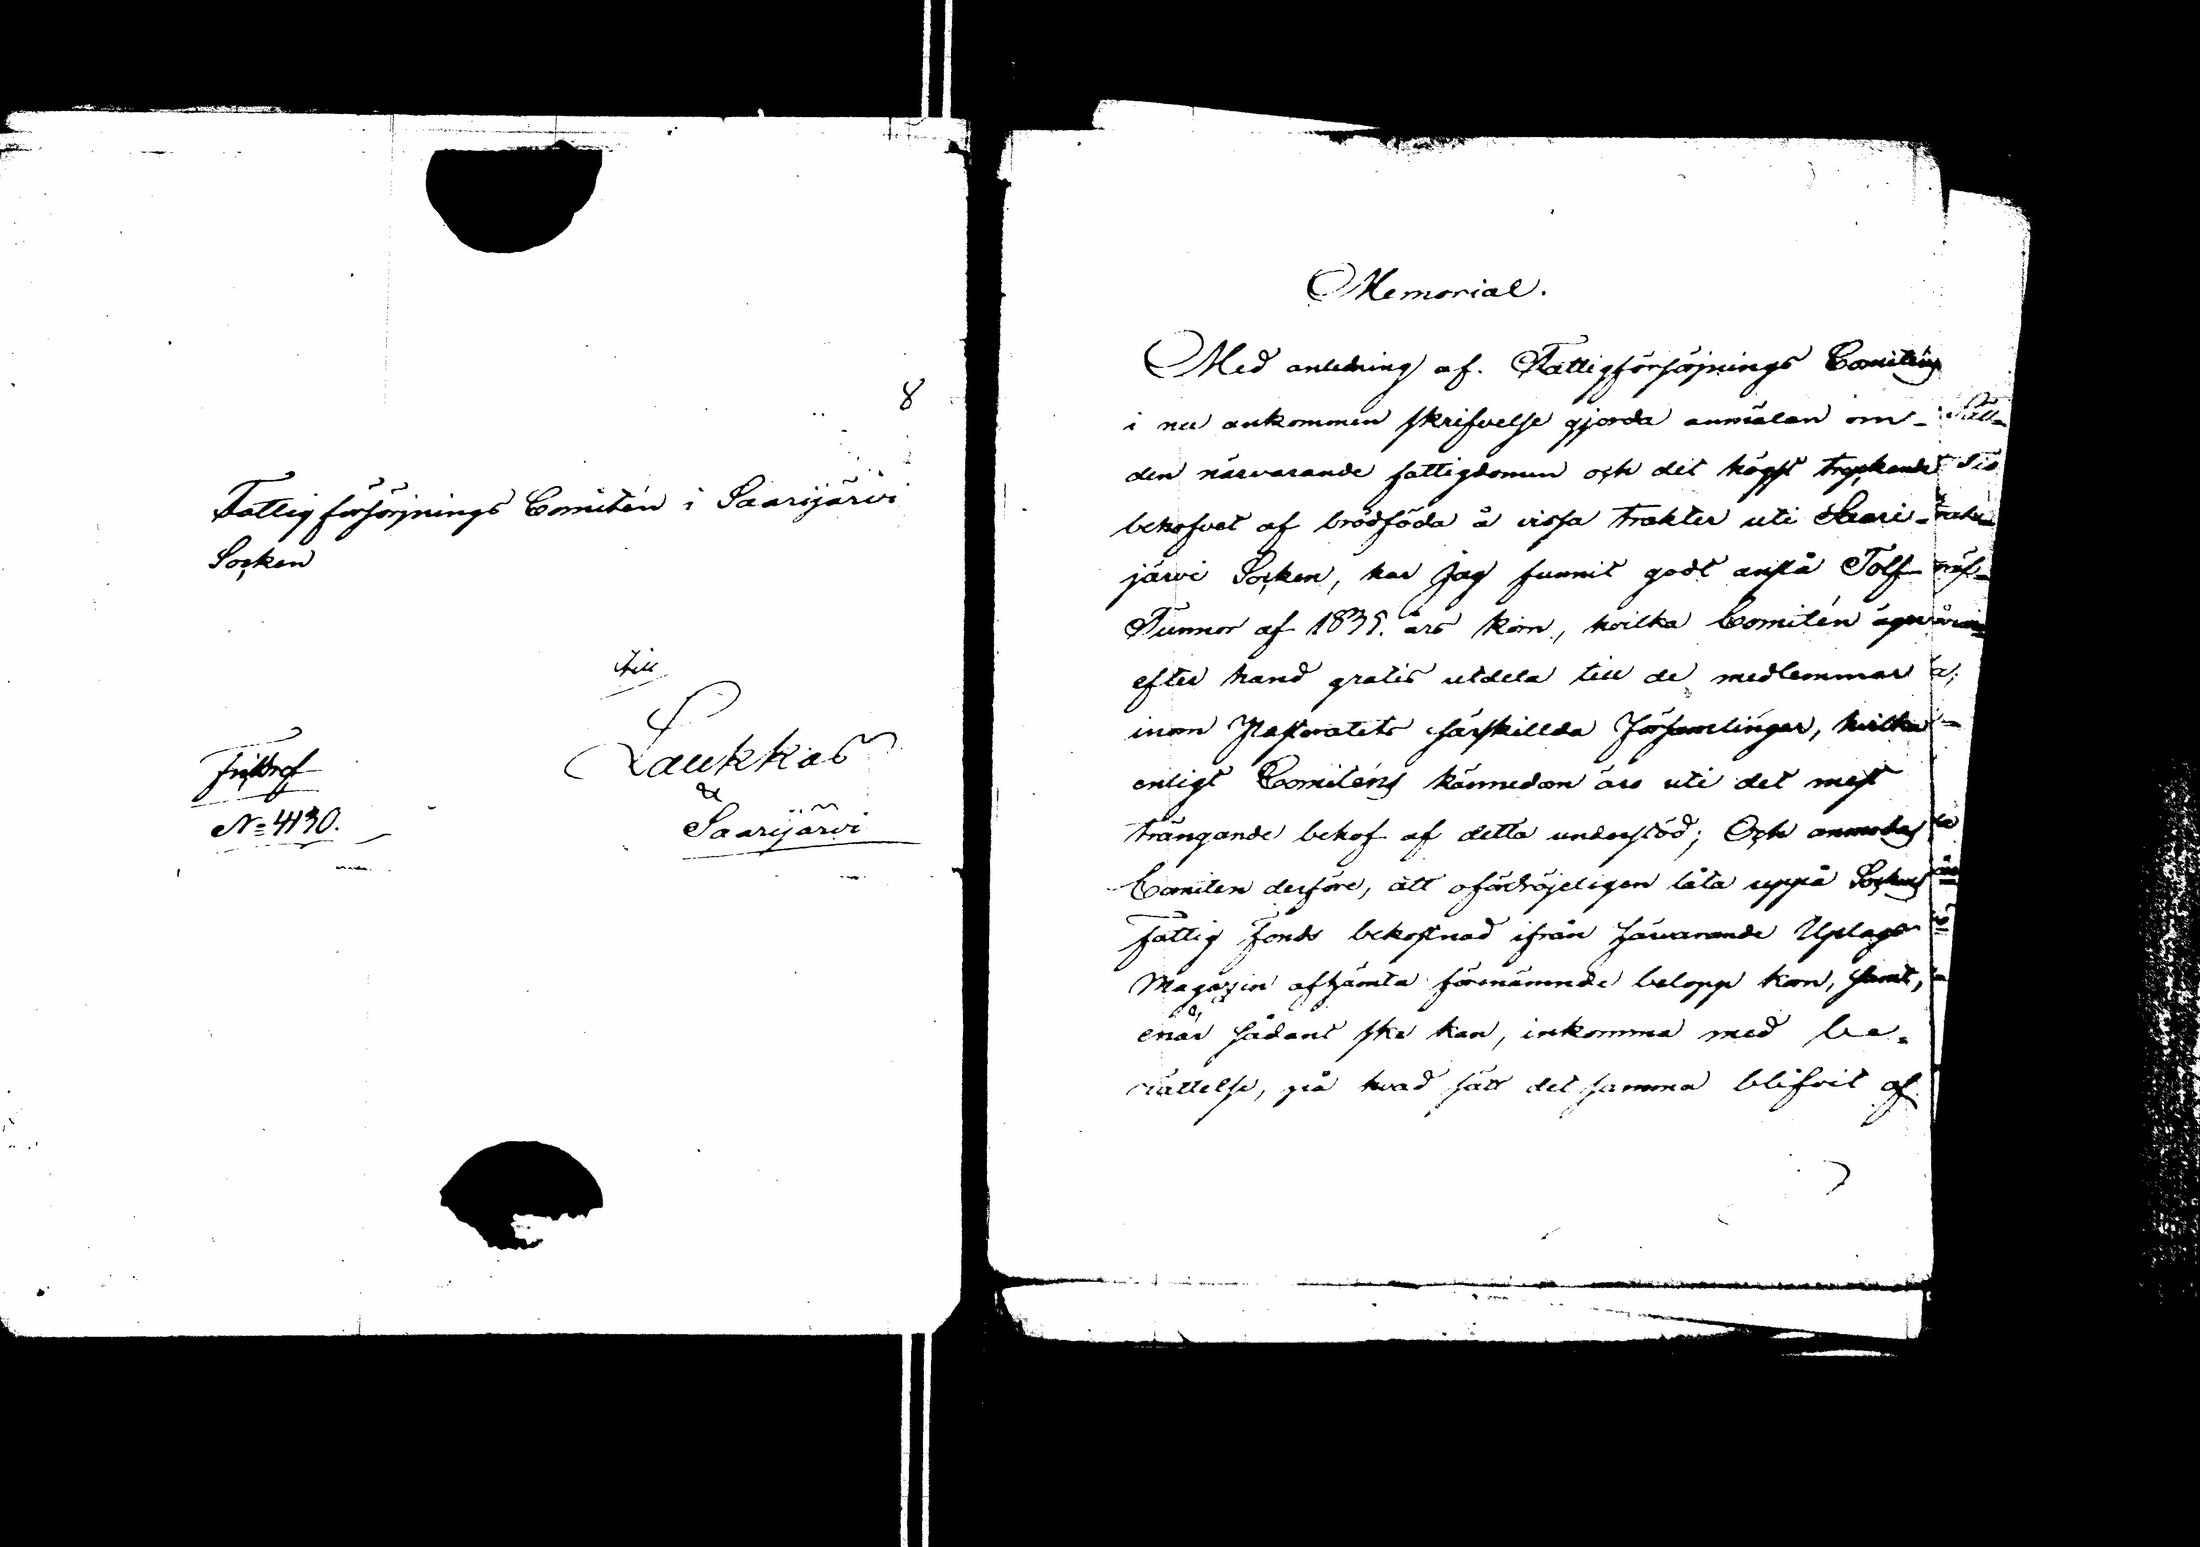 8
Fattigförsörjnings Comitén i Saarijärvi
Socken
till
Laukkas
&
Saarijärvi
Fribref
No 4130.
Memorial.
Med anledning af Fattigförsörjnings Comiténs
i nu ankommen skrifvelse gjorda anmälan om
den närvarande fattigdomen och det högst tryckande
behofvet af brödföda å vissa trakter uti Saari-
järvi Socken, har jag funnit godt anslå Tolf
Tunnor af 1835. års korn, hvilka Comitén äger
efter hand gratis utdela till de medlemmar
inom Pastoratets särskillda Församlingar, hvilka
enligt Comiténs kännedom äro uti det mest
trängande behof af detta understöd; Och anmodas
Comiten derföre, att ofördröjeligen låta uppå Sockens
fattig Fonds bekostnad ifrån härvarande Uplags
Magazin afhämta förenämnde belopp korn, samt,
enär sådant ske kan, inkomma med be-
rättelse, på hvad sätt det samma blifvit af